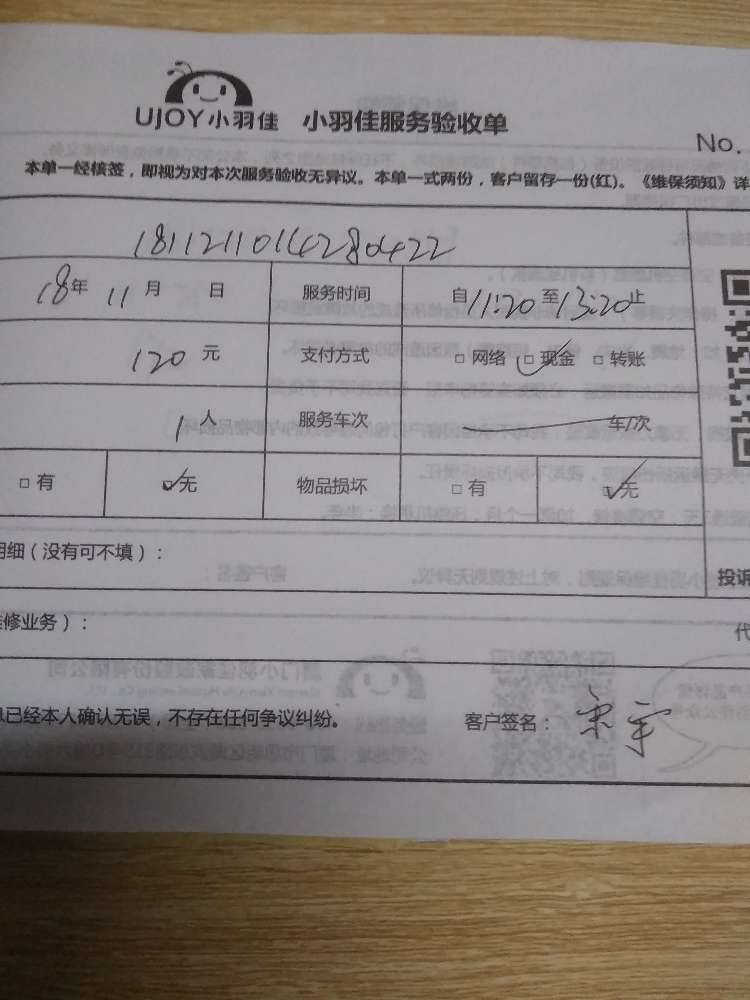 UJOY小羽佳 小羽佳服务验收单
No.
本单一经核签，即视为对本次服务验收无异议。本单一式两份，客户留存一份(红)。《维保须知》详
1811211014280422
18年 11月 日 服务时间 自11:20至13:20止
120元 支付方式 □网络 ☑现金 □转账
1人 服务车次 车/次
□有 ☑无 物品损坏 □有 ☑无
明细（没有可不填）：
投诉
维修业务）：
代
息已经本人确认无误，不存在任何争议纠纷。 客户签名：宋宇